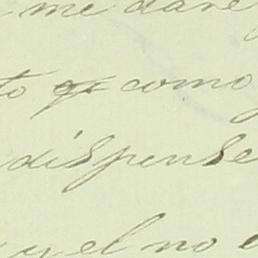 me dare
to como
dispense
y el no